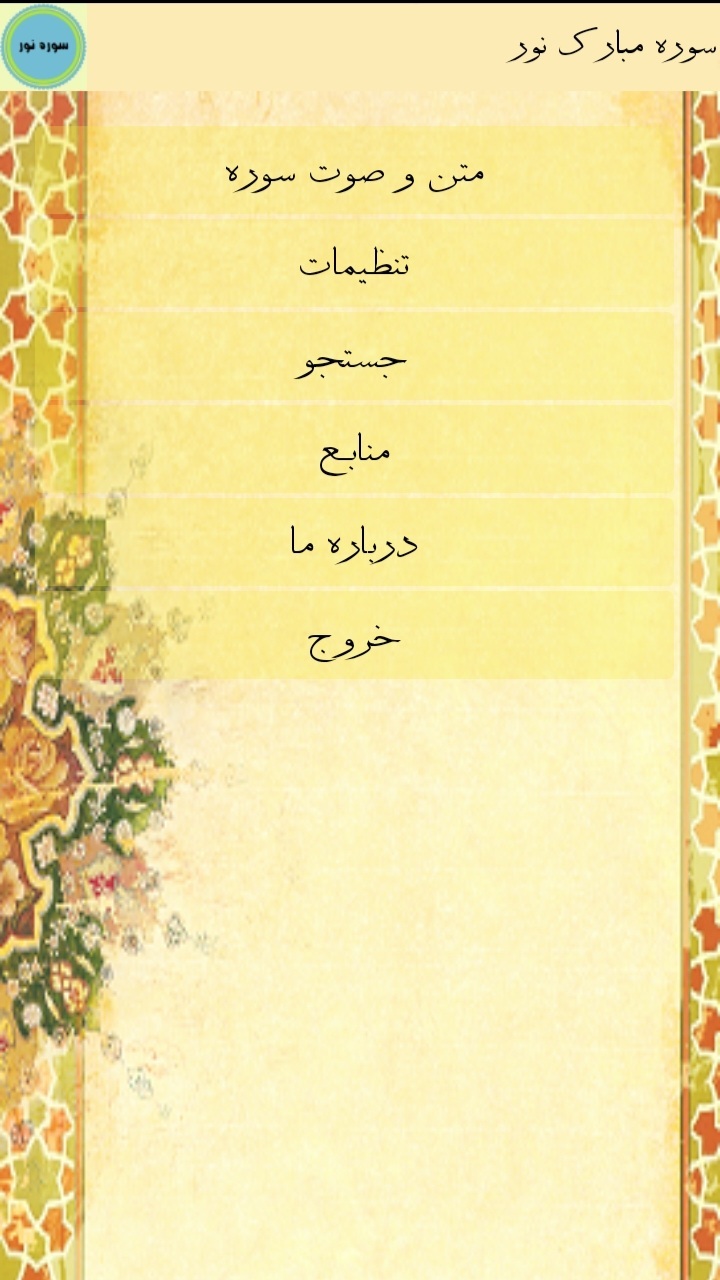 سوره مبارک نور
سوره نور
متن و صوت سوره
تنظیمات
جستجو
منابع
درباره ما
خروج